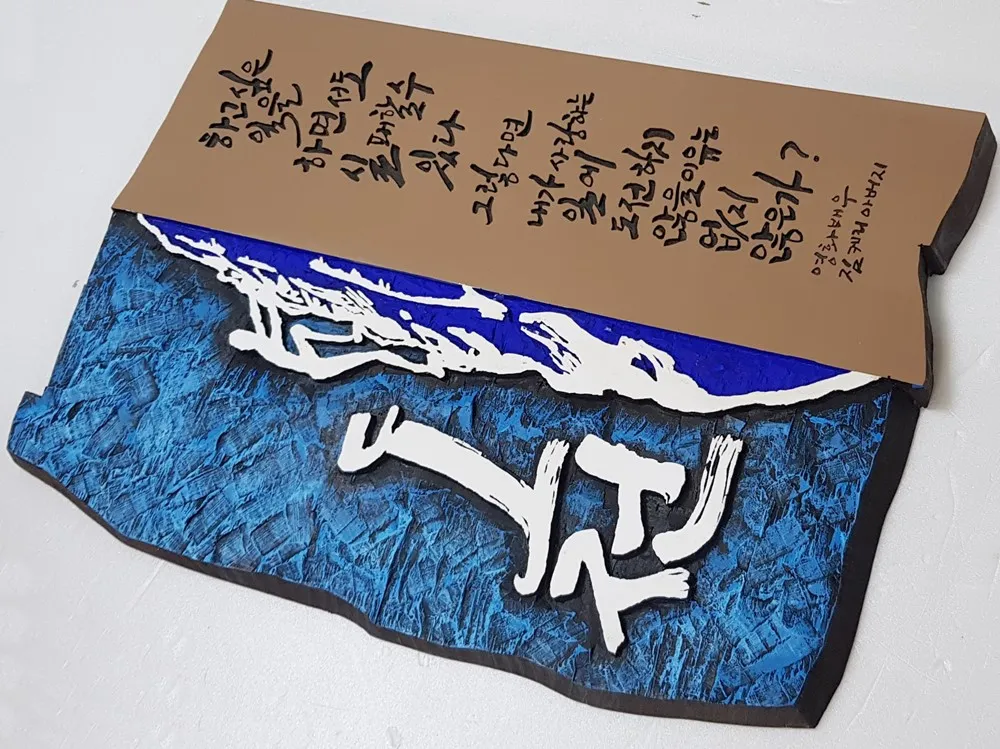 하고싶은
일을
하면서도
실패할수
있다
그렇다면
내가 사랑하는
일에
도전하지
않을이유는
없지
않은가?
영화배우
짐케리 아버지
도전